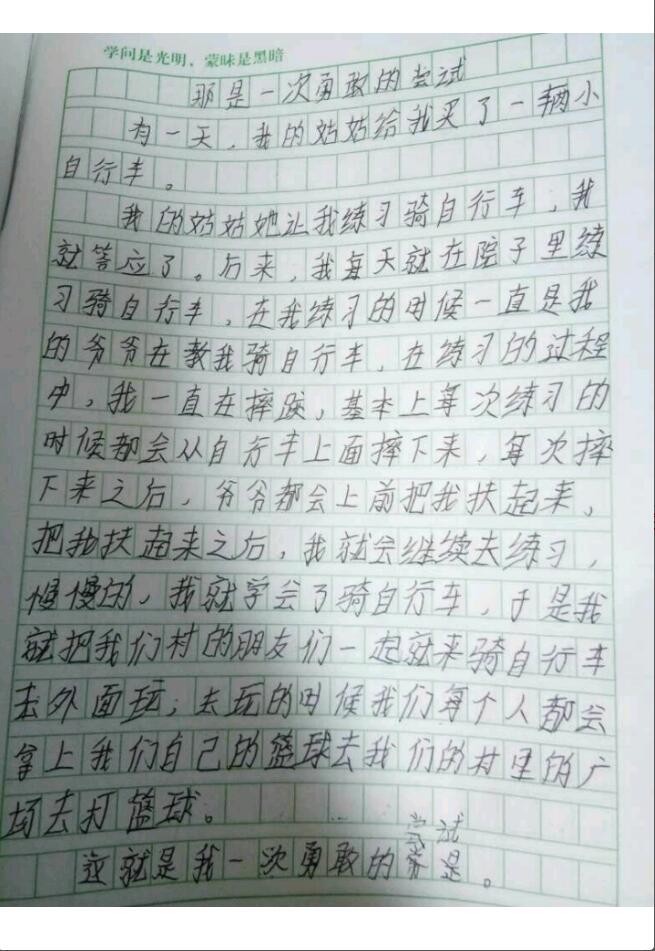 学问是光明，蒙昧是黑暗
那是一次勇敢的尝试
有一天，我的姑姑给我买了一辆小
自行车。
我的姑姑她让我练习骑自行车，我
就答应了。后来，我每天就在院子里练
习骑自行车，在我练习的时候一直是我
的爷爷在教我骑自行车，在练习的过程
中，我一直在摔跤，基本上每次练习的
时候都会从自行车上面摔下来，每次摔
下来之后，爷爷都会上前把我扶起来，
把我扶起来之后，我就会继续去练习，
慢慢的，我就学会了骑自行车，于是我
就把我们村的朋友们一起就来骑自行车
去外面玩；去玩的时候我们每个人都会
拿上我们自己的篮球去我们的村里的广
场去打篮球。
尝试
这就是我一次勇敢的常是。